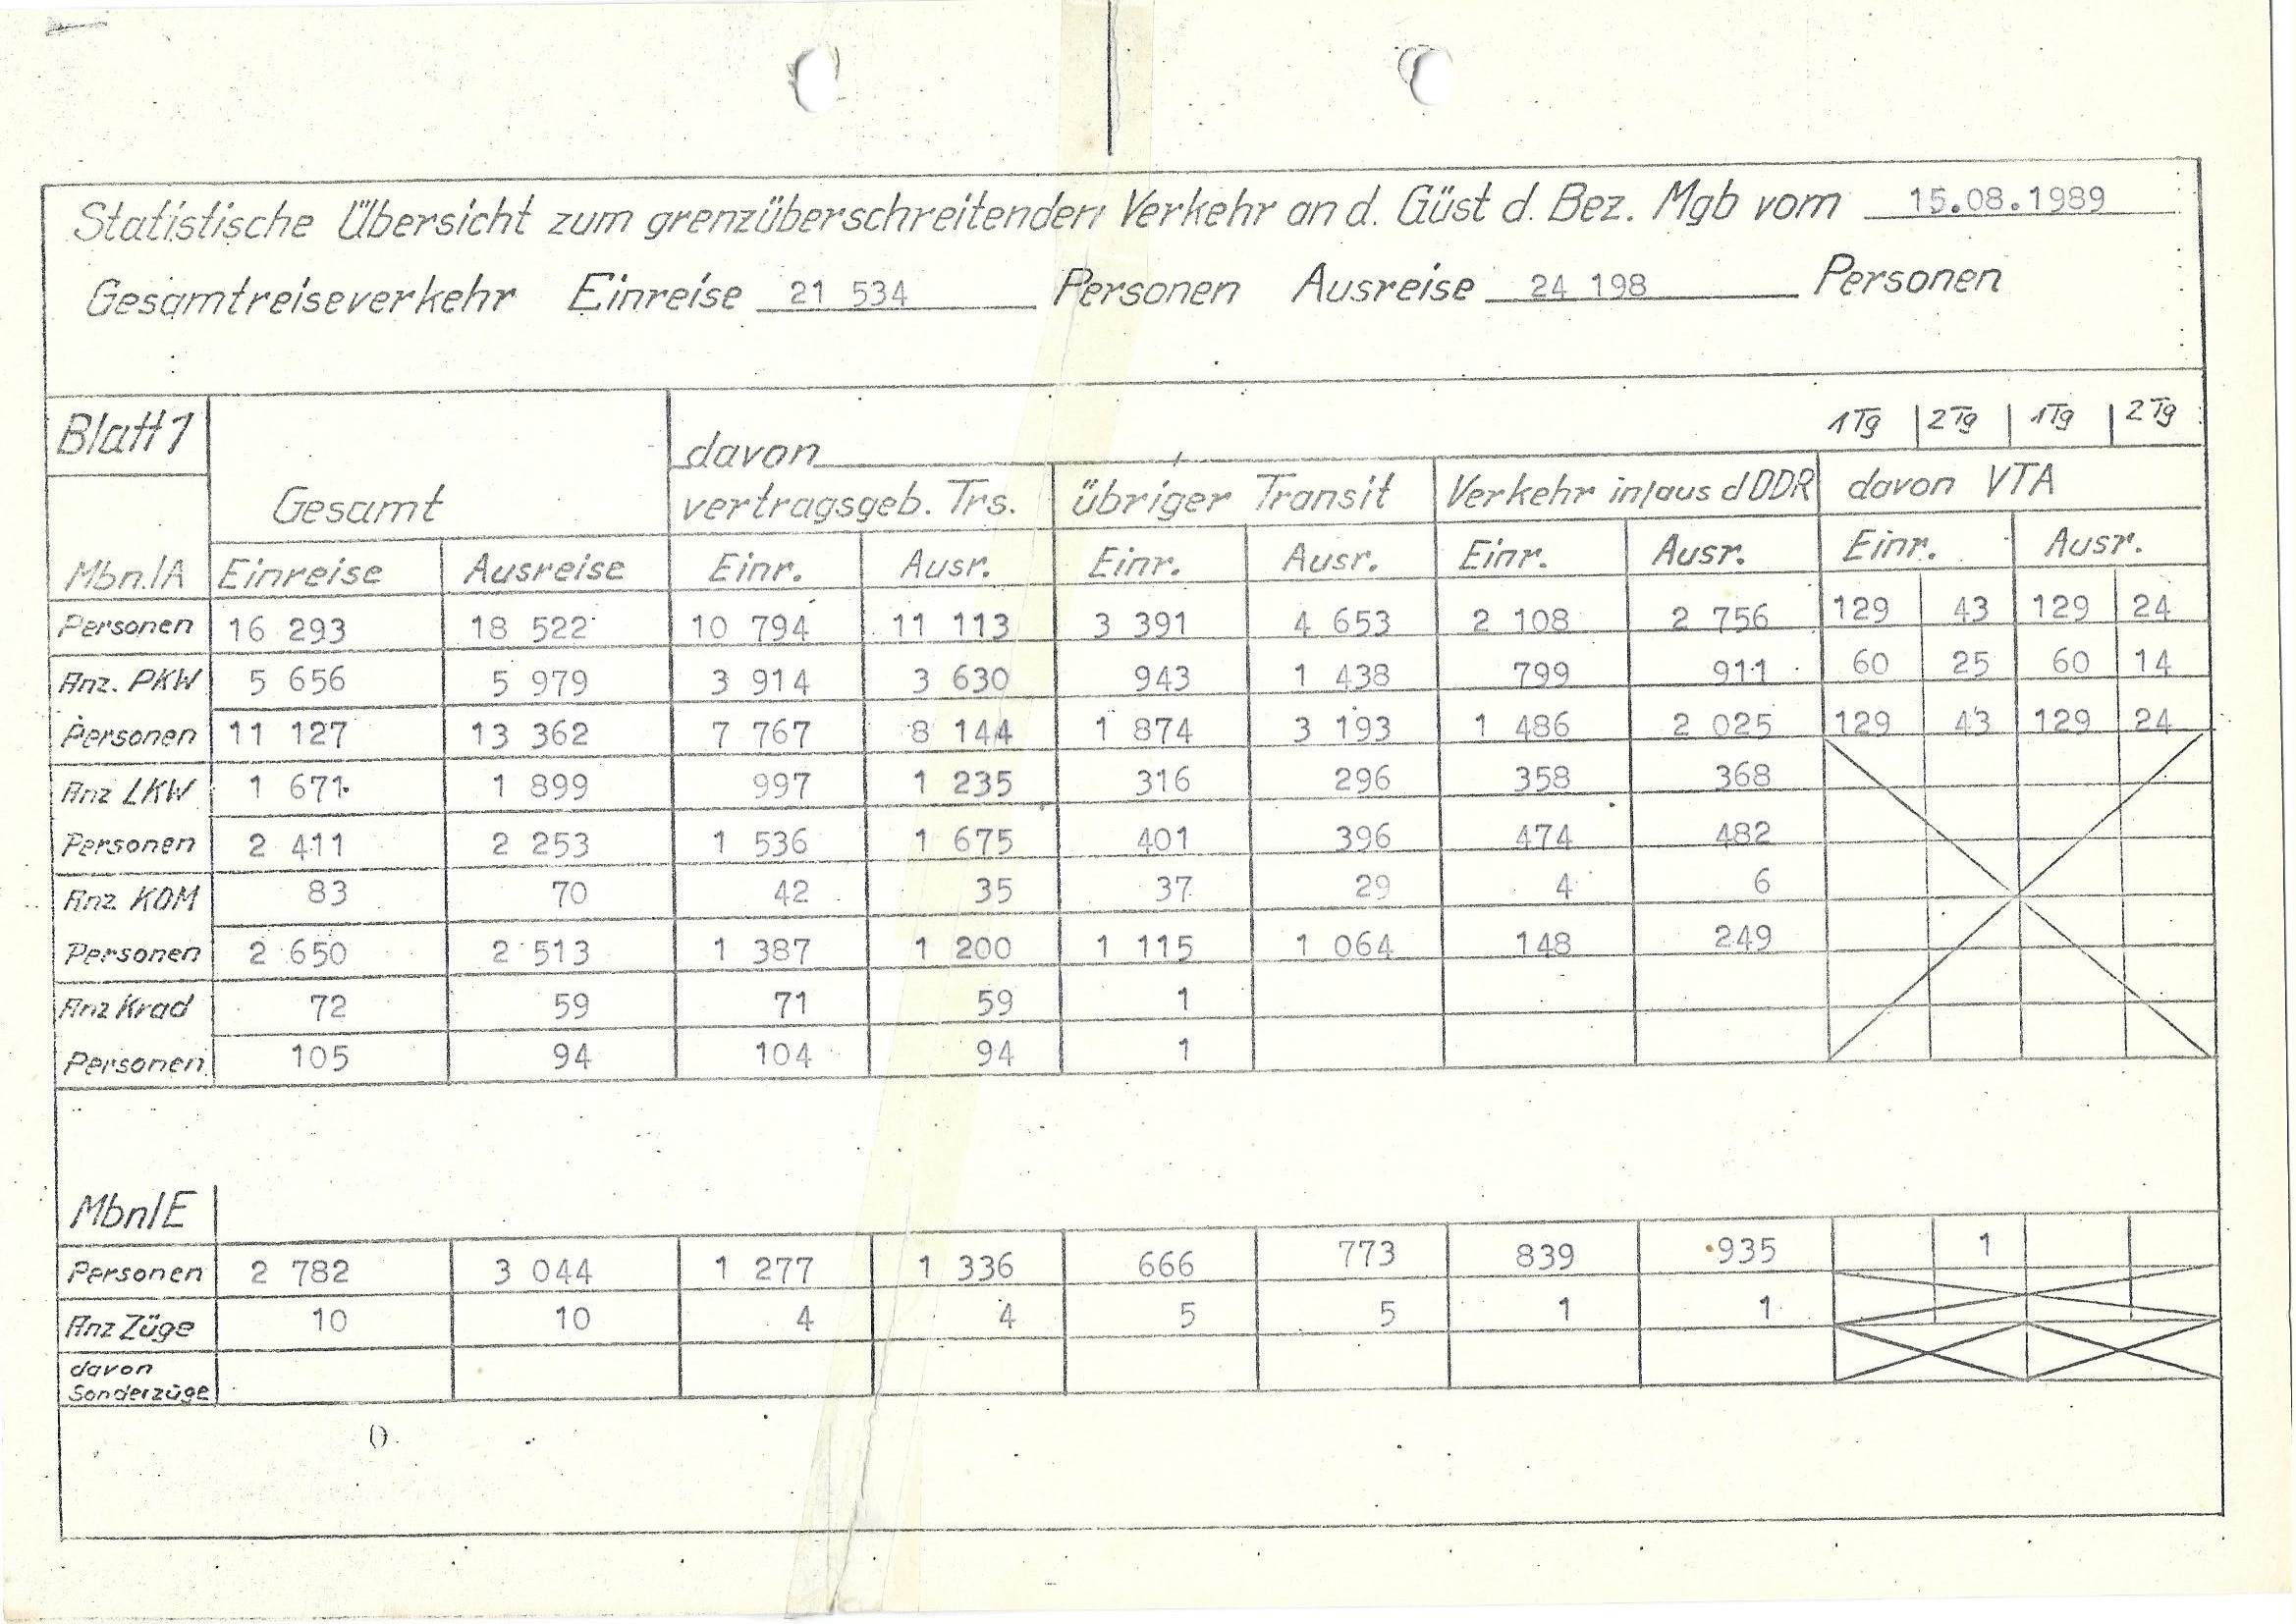 Statistische Übersicht zum grenzüberschreitenden Verkehr an d. Güst d. Bez. Mgb vom 15.08.1989
Gesamtreiseverkehr Einreise 21 534 Personen Ausreise 24 198 Personen
Blatt 1 1 Tg 2 Tg 1 Tg 2 Tg
davon
Gesamt vertragsgeb. Trs. übriger Transit Verkehr in/aus d DDR davon VTA
Mbn./A Einreise Ausreise Einr. Ausr. Einr. Ausr. Einr. Ausr. Einr. Ausr.
Personen 16 293 18 522 10 794 11 113 3 391 4 653 2 108 2 756 129 43 129 24
Anz. PKW 5 656 5 979 3 914 3 630 943 1 438 799 911 60 25 60 14
Personen 11 127 13 362 7 767 8 144 1 874 3 193 1 486 2 025 129 43 129 24
Anz LKW 1 671 1 899 997 1 235 316 296 358 368
Personen 2 411 2 253 1 536 1 675 401 396 474 482
Anz KOM 83 70 42 35 37 29 4 6
Personen 2 650 2 513 1 387 1 200 1 115 1 064 148 249
Anz Krad 72 59 71 59 1
Personen 105 94 104 94 1
Mbn/E
Personen 2 782 3 044 1 277 1 336 666 773 839 935 1
Anz Züge 10 10 4 4 5 5 1 1
davon
Sonderzüge